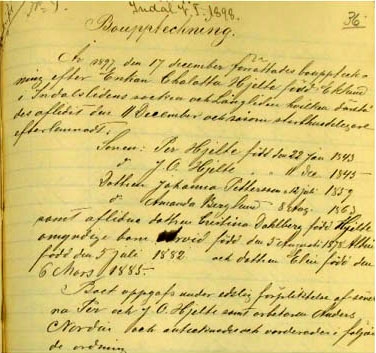 Indal V.T. 1898. 36
Bouppteckning.
År 1897 den 17 december förrättades bouppteck-
ning efter Enkan Chalotta Hjelte född Eklund
i Indalslidens socken och Långliden hvilken därstä-
des aflidit den 11 December och såsom sterbhusdelegare
efterlemnat:
Sonen: Per Hjelte född den 22 Jan 1843
d J. O. Hjelte " 11 dec 1845
Dottren Johanna Pettersson 12 juli 1859
d Amanda Berglund 8 Aug. 1863
samt aflidne dottren Cristina Dahlberg född Hjelte
omyndige barn Arvid född den 5 Augusti 1878
född den 5 juli 1882 och dottren Elin född den
6 Mars 1885.
Boet uppgafs under edelig förpliktelse af söner
na Per och J. O. Hjelte samt arbetaren Anders
Nordin och antecknades och värderades i följan
de ordning